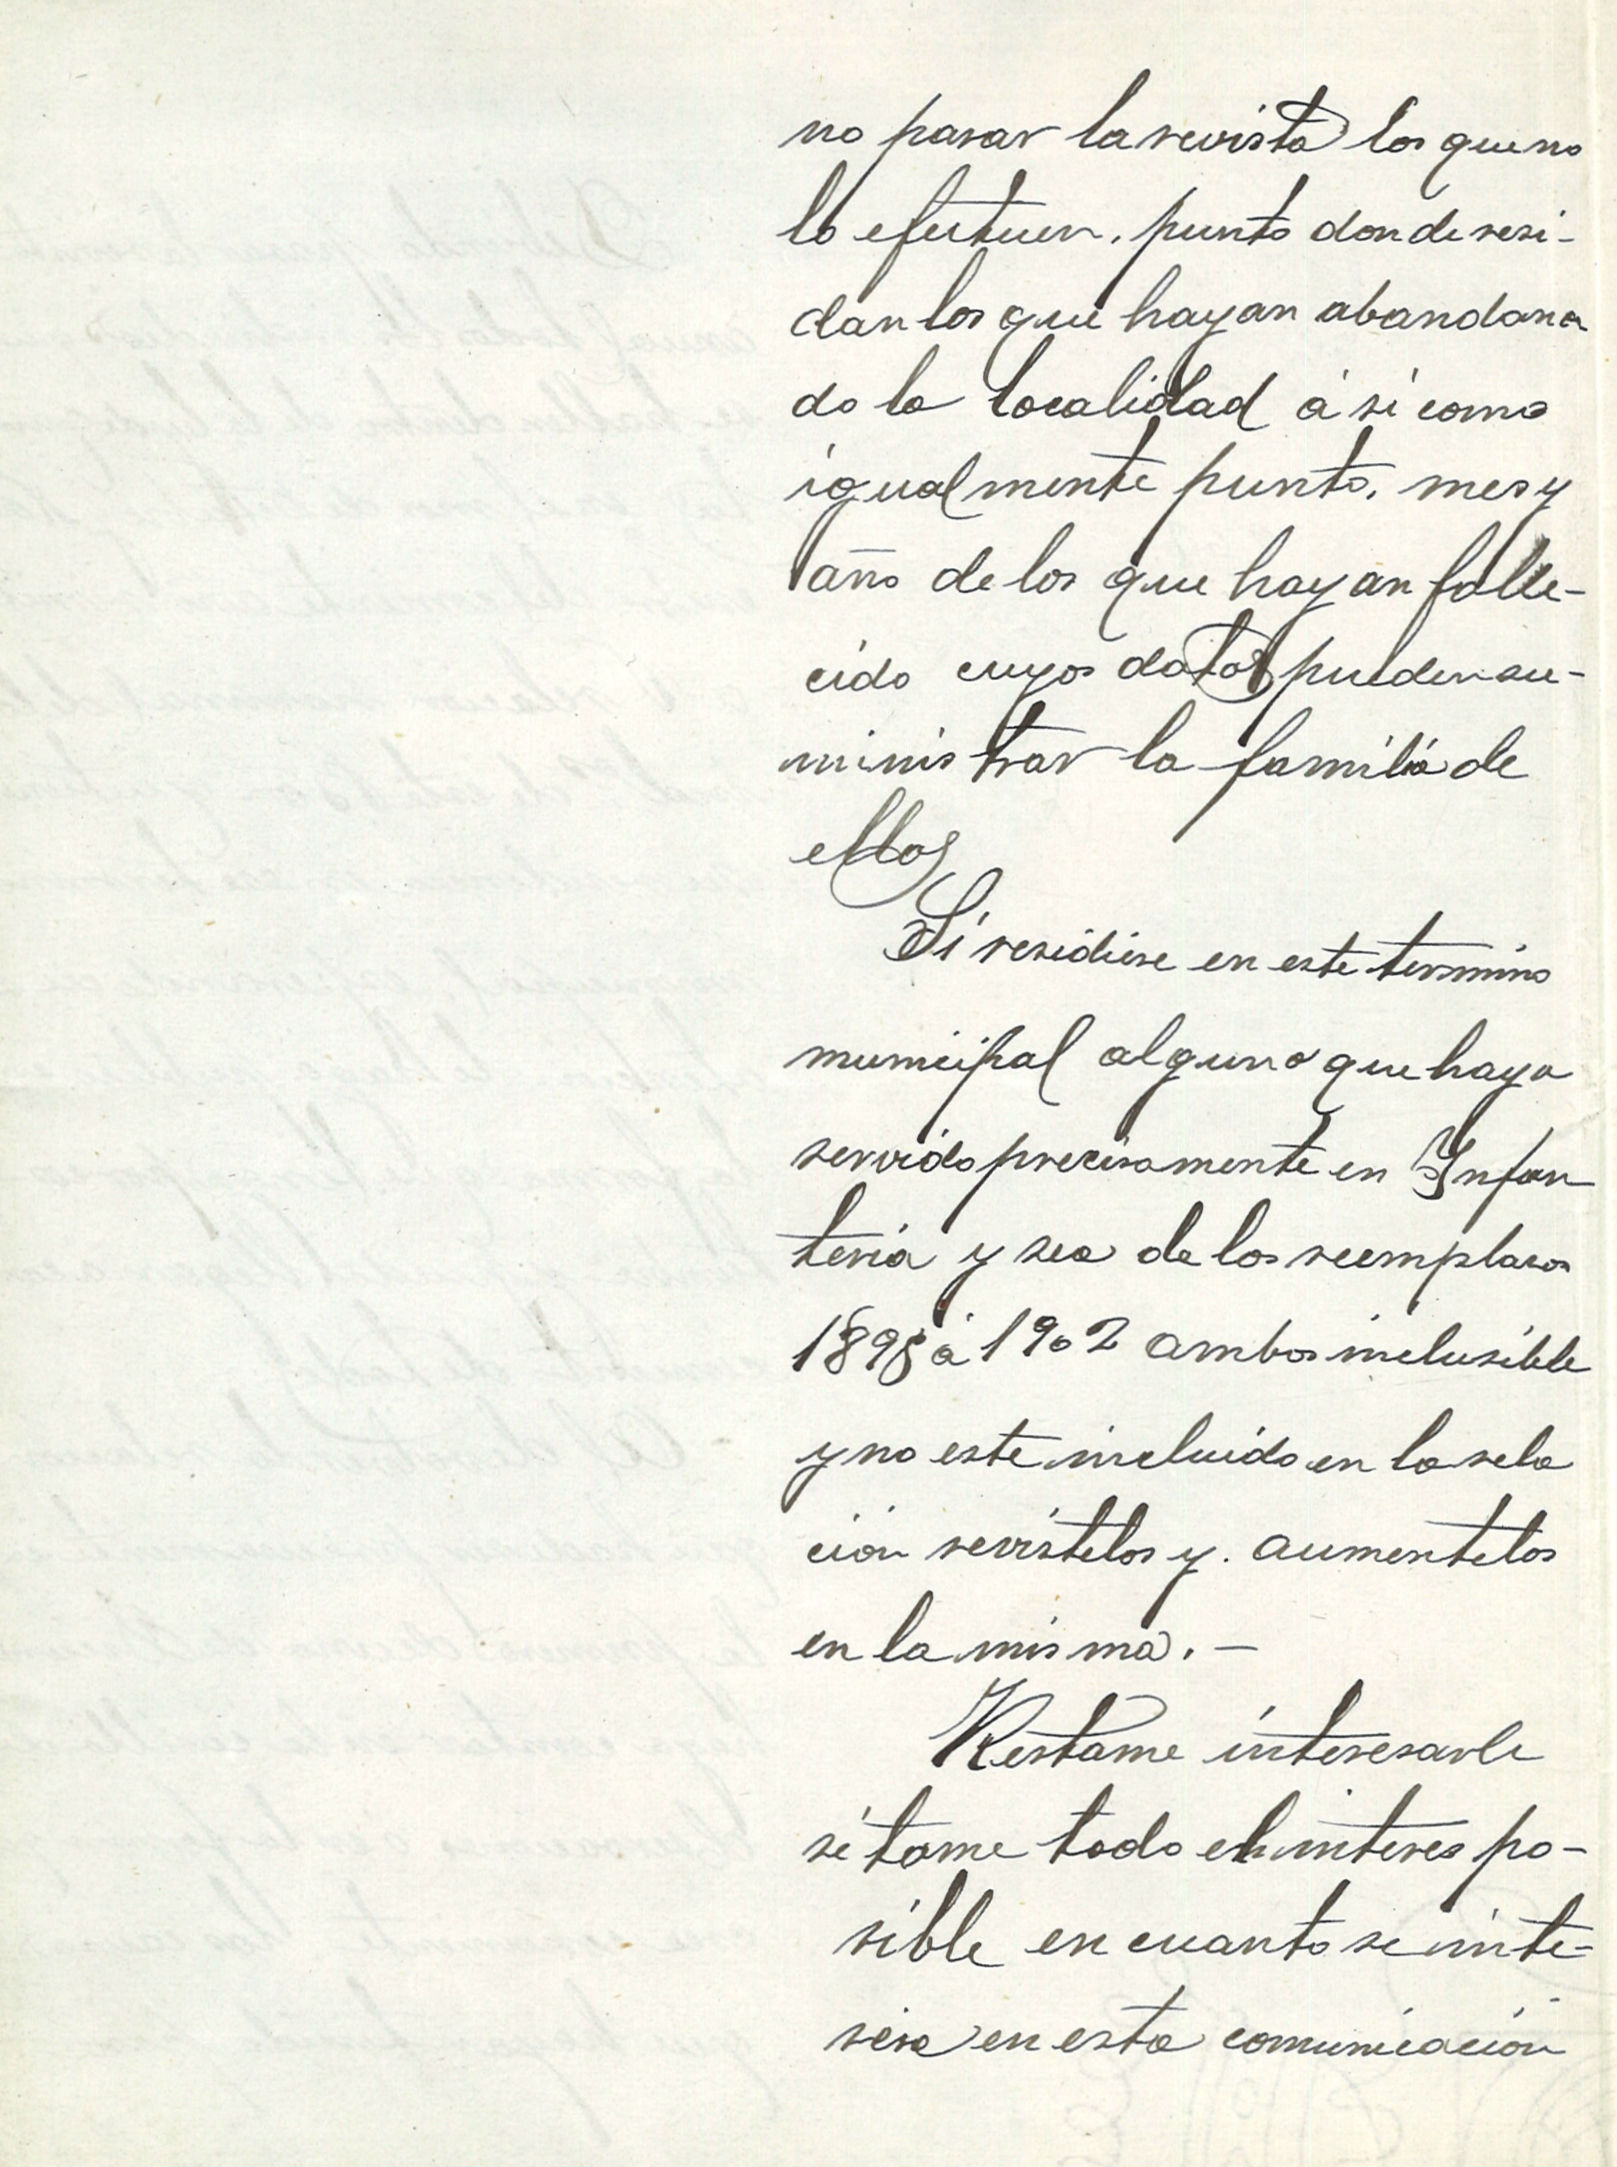 no pasar la revista los que no
lo efectuen, punto donde resi-
dan los que hayan abandona
do la localidad ási como
igualmente punto, mes y
año de los que hayan falle-
cido cuyos datos pueden su-
ministrar la familia de
ellos
Si residiese en este termino
municipal alguno que haya
servido precisamente en Infan
teria y sea de los reemplazos
1898 á 1902 ambos inclusible
y no este incluido en la rela
ción revistelos y. aumentelos
en la misma. —
Restame interesarle
se tome todo el interes po-
sible en cuanto se inte-
resa en esta comunicación